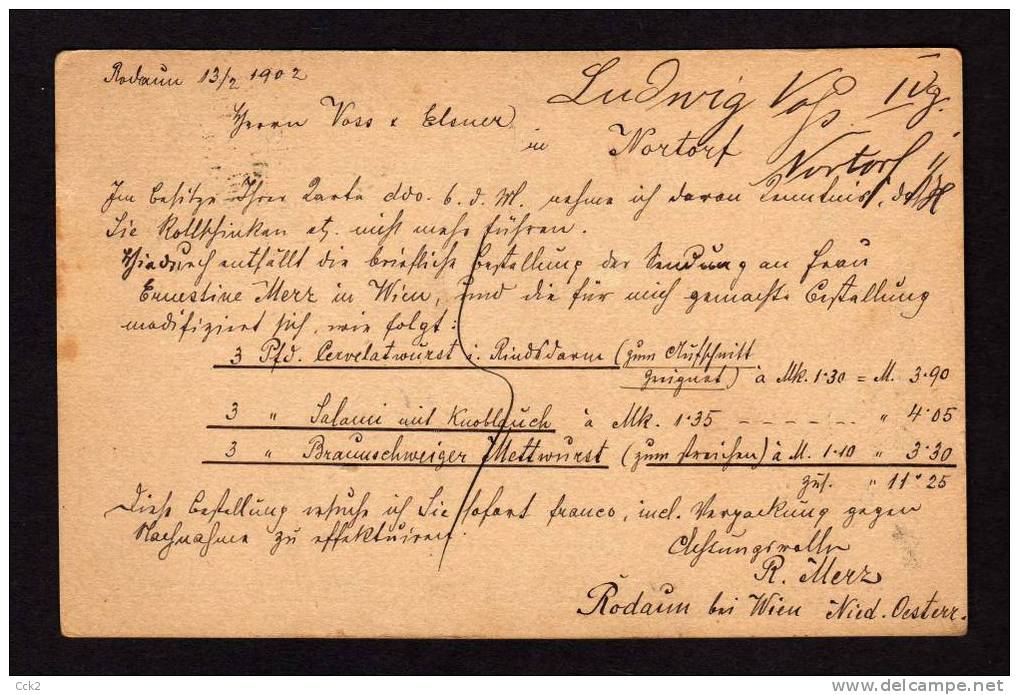 Rodaun 13/2 1902
Ludwig Voß.
Herrn Voss & Elsner
in Nortorf
Nortorf
Im Besitze Ihrer Karte ddo. 6. d. M. nehme ich davon Kenntnis, daß
Sie Rollschinken etz. nicht mehr führen.
Hiedurch entfällt die briefliche Bestellung der Sendung an Frau
Ernestine Merz in Wien, und die für mich gemachte Bestellung
modifiziert sich, wie folgt:
3 Pfd. Cervelatwurst i. Rindsdarm (zum Aufschnitt
geeignet) à Mk. 1·30 = M. 3·90
3 " Salami mit Knoblauch à Mk. 1·35 - - - - - - - " 4·05
3 " Braunschweiger Mettwurst (zum streichen) à M. 1·10 " 3·30
zus. " 11·25
Diese Bestellung ersuche ich Sie sofort franco, incl. Verpackung gegen
Nachnahme zu effektuieren.
Achtungsvoll
R. Merz
Rodaun bei Wien Nied. Oesterr.
Cck2
delcampe.net